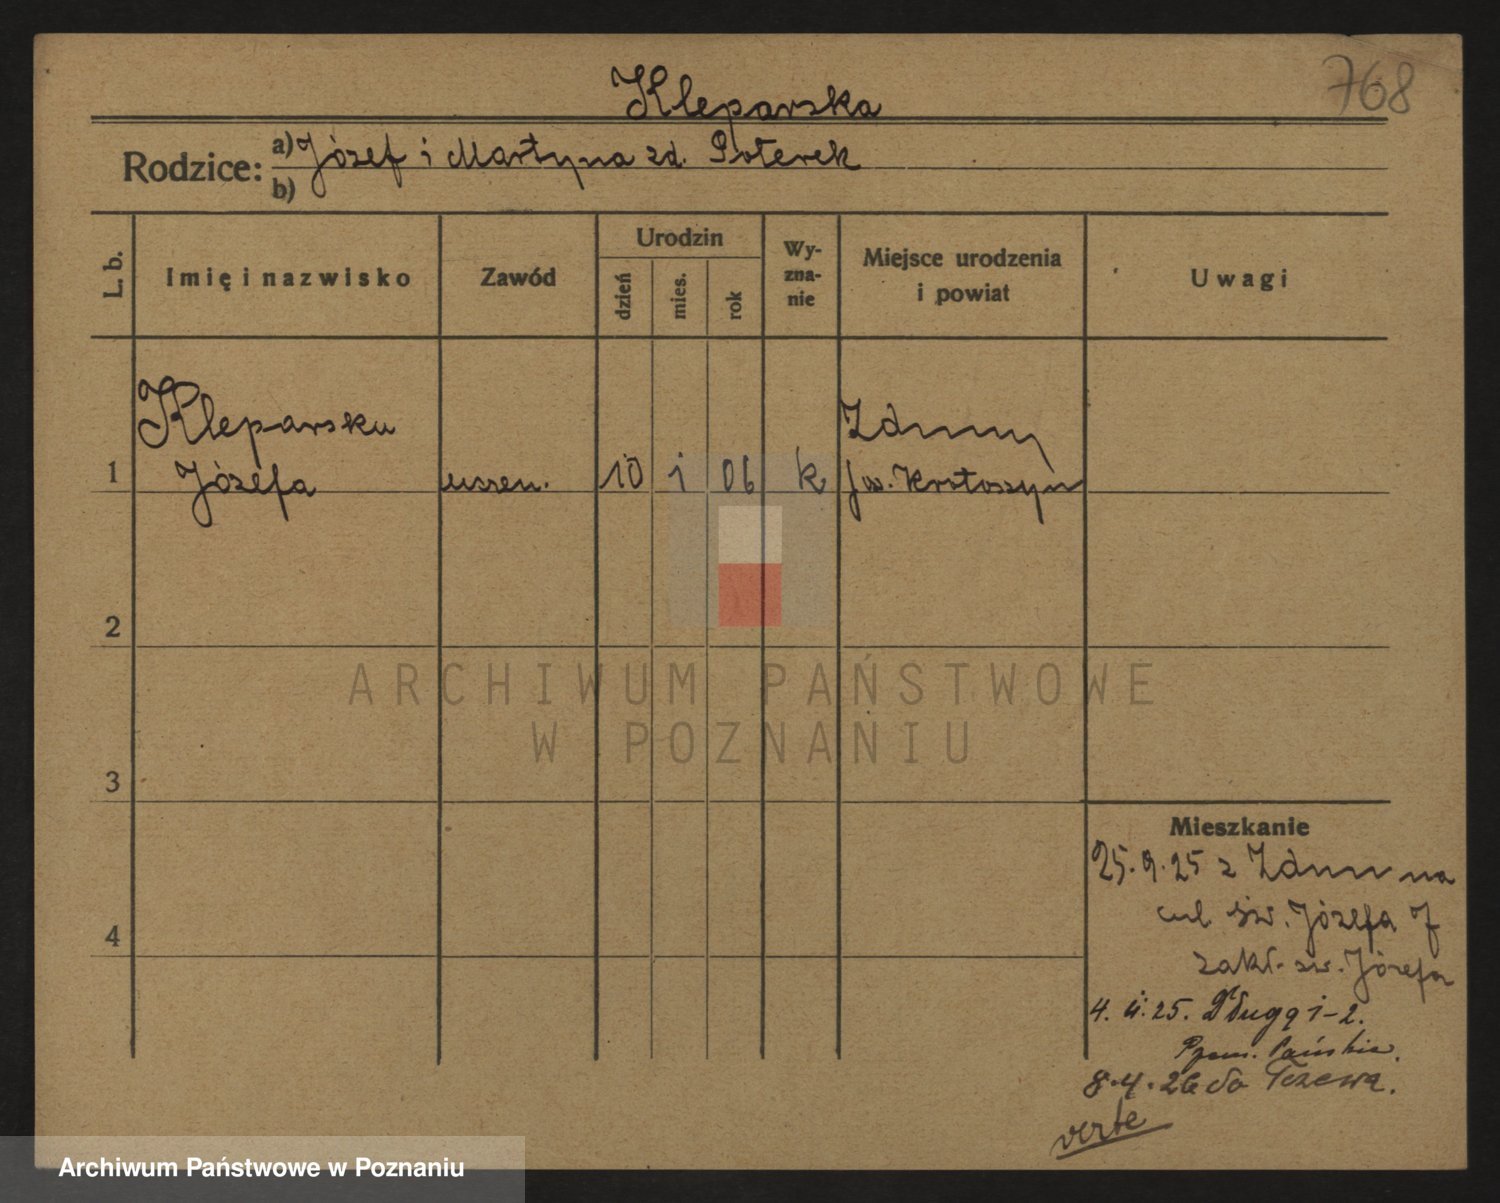 768
Kleparska
Rodzice: a) Józef i Martyna zd. Poterek
b)
L. b.
Imię i nazwisko
Zawód
Urodzin
dzień
mies.
rok
Wy-
zna-
nie
Miejsce urodzenia
i powiat
Uwagi
Kleparska
Zduny
1 Józefa uczen. 10 1 06 k pow. Krotoszyn
2
3
4
ARCHIWUM PAŃSTWOWE
W POZNANIU
Mieszkanie
25.9.25 z Zdun na
ul. św. Józefa 7
zakł. św. Józefa
4. 11. 25. Długą 1-2.
Przem. Pańskie.
8.4.26 do Tczewa.
verte
Archiwum Państwowe w Poznaniu